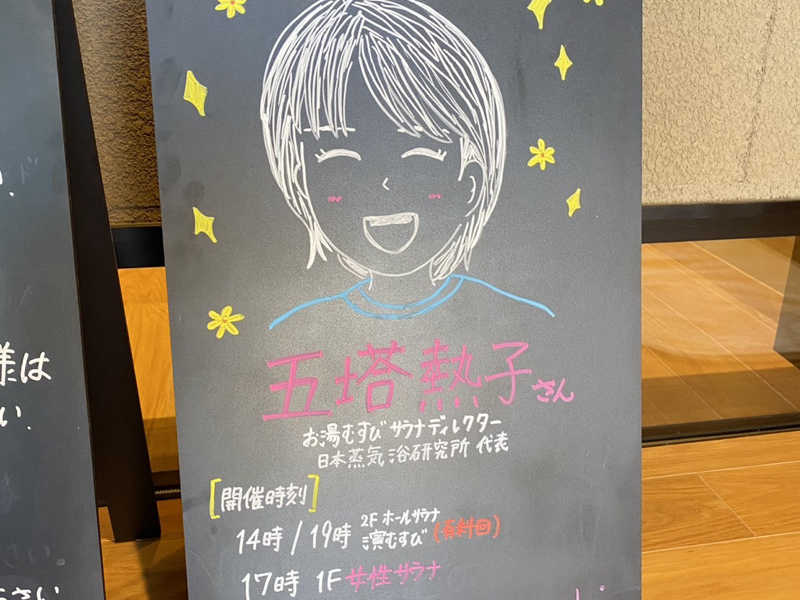 五塔熱子さん
お湯むすびサウナディレクター
日本蒸気浴研究所 代表
[開催時刻]
14時/19時 2Fホールサウナ 濱むすび(有料回)
17時 1F 女性サウナ
様は
い.
さい